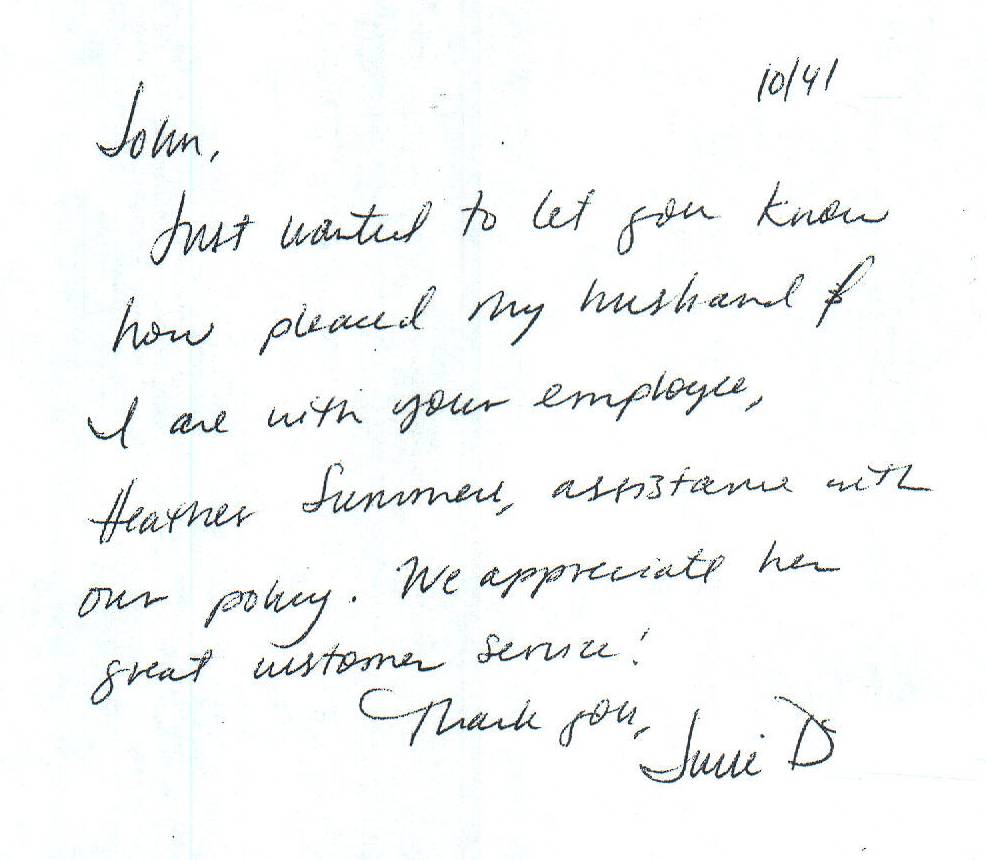 10/41
John,
Just wanted to let you know
how pleased my husband &
I are with your employee,
Heather Summers, assistance with
our policy. We appreciate her
great customer service!
Thank you,
D